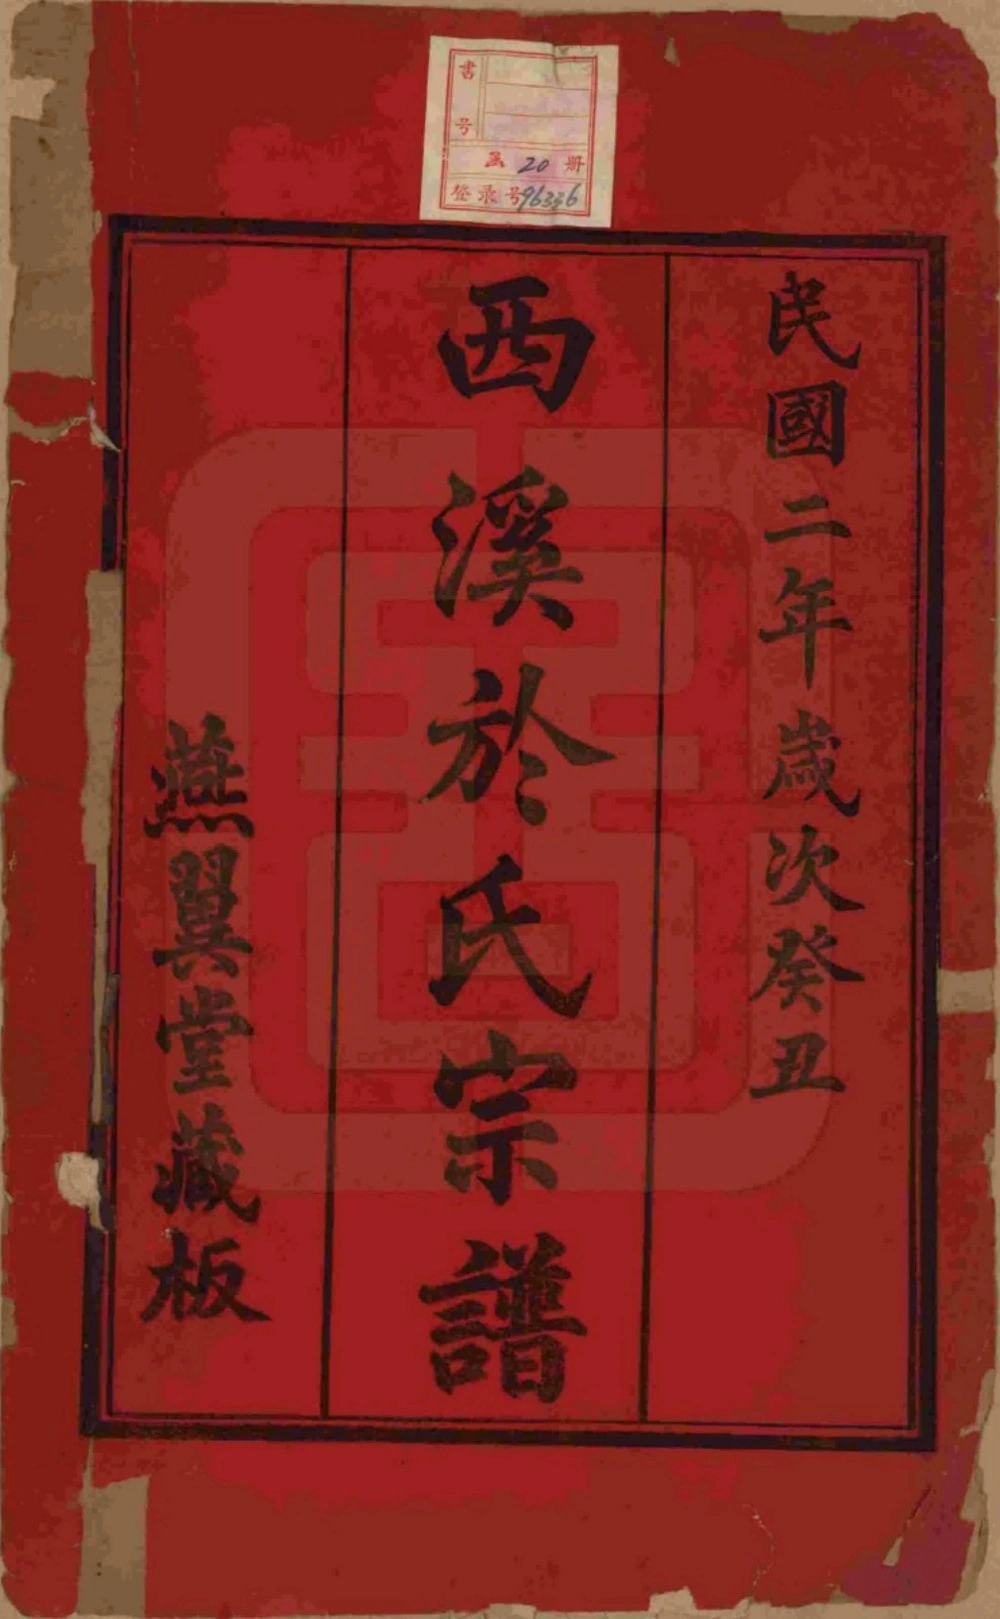 書号
函 20 册
登录号96336
民國二年歲次癸丑
西溪於氏宗譜
燕翼堂藏板